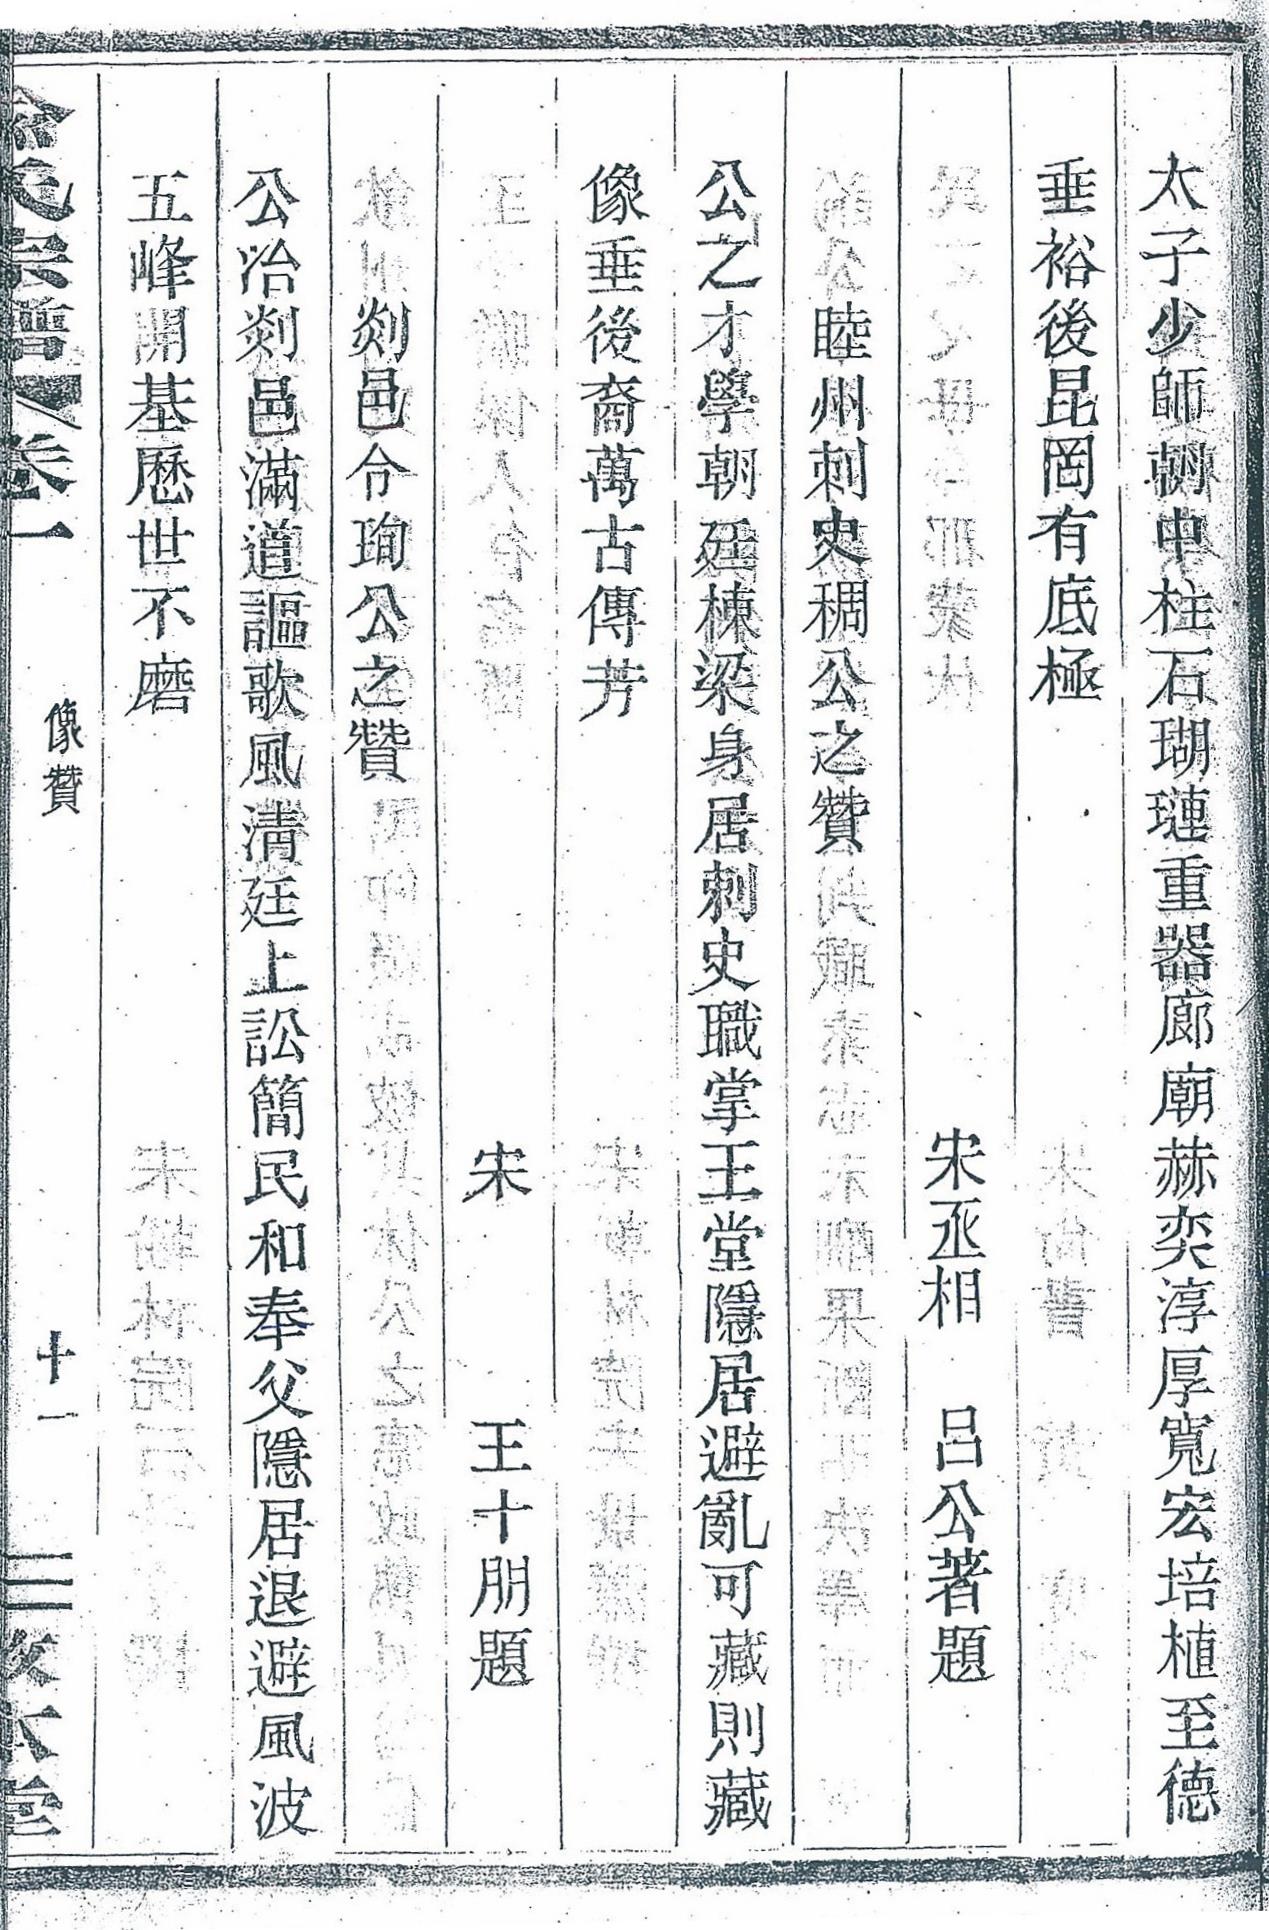 太子少師朝中柱石瑚璉重器廊廟赫奕淳厚寬宏培植至德
垂裕後昆罔有底極
宋丞相　呂公著題
睦州刺史稠公之贊
公之才學朝廷棟梁身居刺史職掌王堂隱居避亂可藏則藏
像垂後裔萬古傳芳
宋　王十朋題
剡邑令珣公之贊
公冶剡邑滿道謳歌風清廷上訟簡民和奉父隱居退避風波
五峰開基歷世不磨
氏宗譜　卷一　像贊　十一　本堂